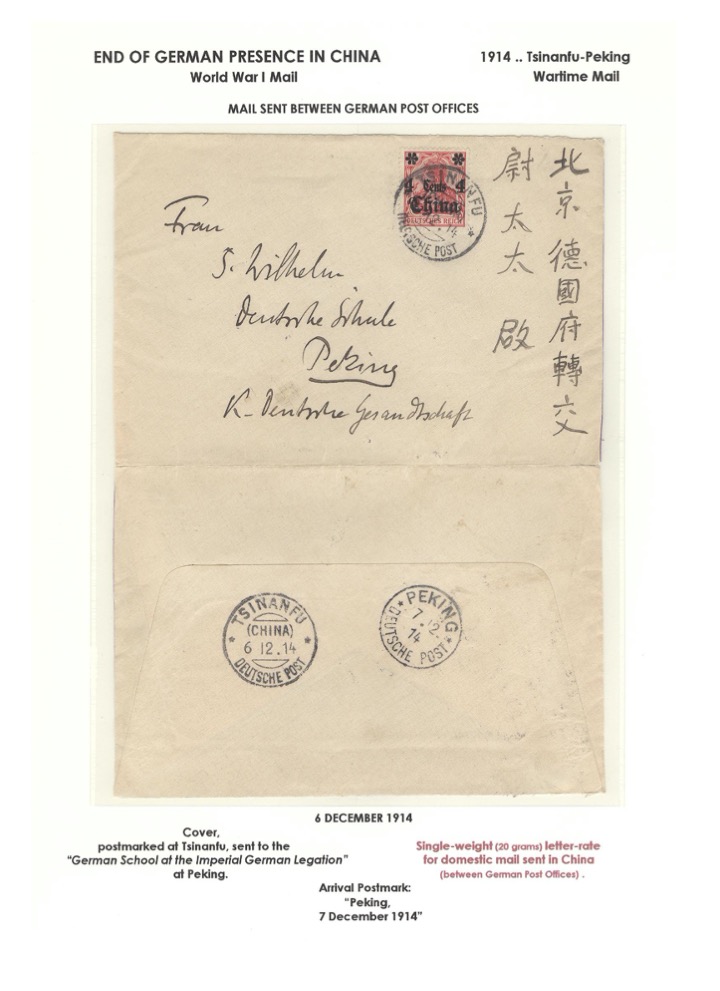 END OF GERMAN PRESENCE IN CHINA
World War I Mail
1914 .. Tsinanfu-Peking
Wartime Mail
MAIL SENT BETWEEN GERMAN POST OFFICES
4 Cents 4
China
DEUTSCHES REICH
TSINANFU
DEUTSCHE POST
北京德國府轉交
尉太太 啟
Frau
S. Wilhelm
Deutsche Schule
Peking
K. Deutsche Gesandtschaft
TSINANFU
(CHINA)
6 12.14
DEUTSCHE POST
PEKING
7.12.
14
DEUTSCHE POST
6 DECEMBER 1914
Cover,
postmarked at Tsinanfu, sent to the
"German School at the Imperial German Legation"
at Peking.
Single-weight (20 grams) letter-rate
for domestic mail sent in China
(between German Post Offices) .
Arrival Postmark:
"Peking,
7 December 1914"